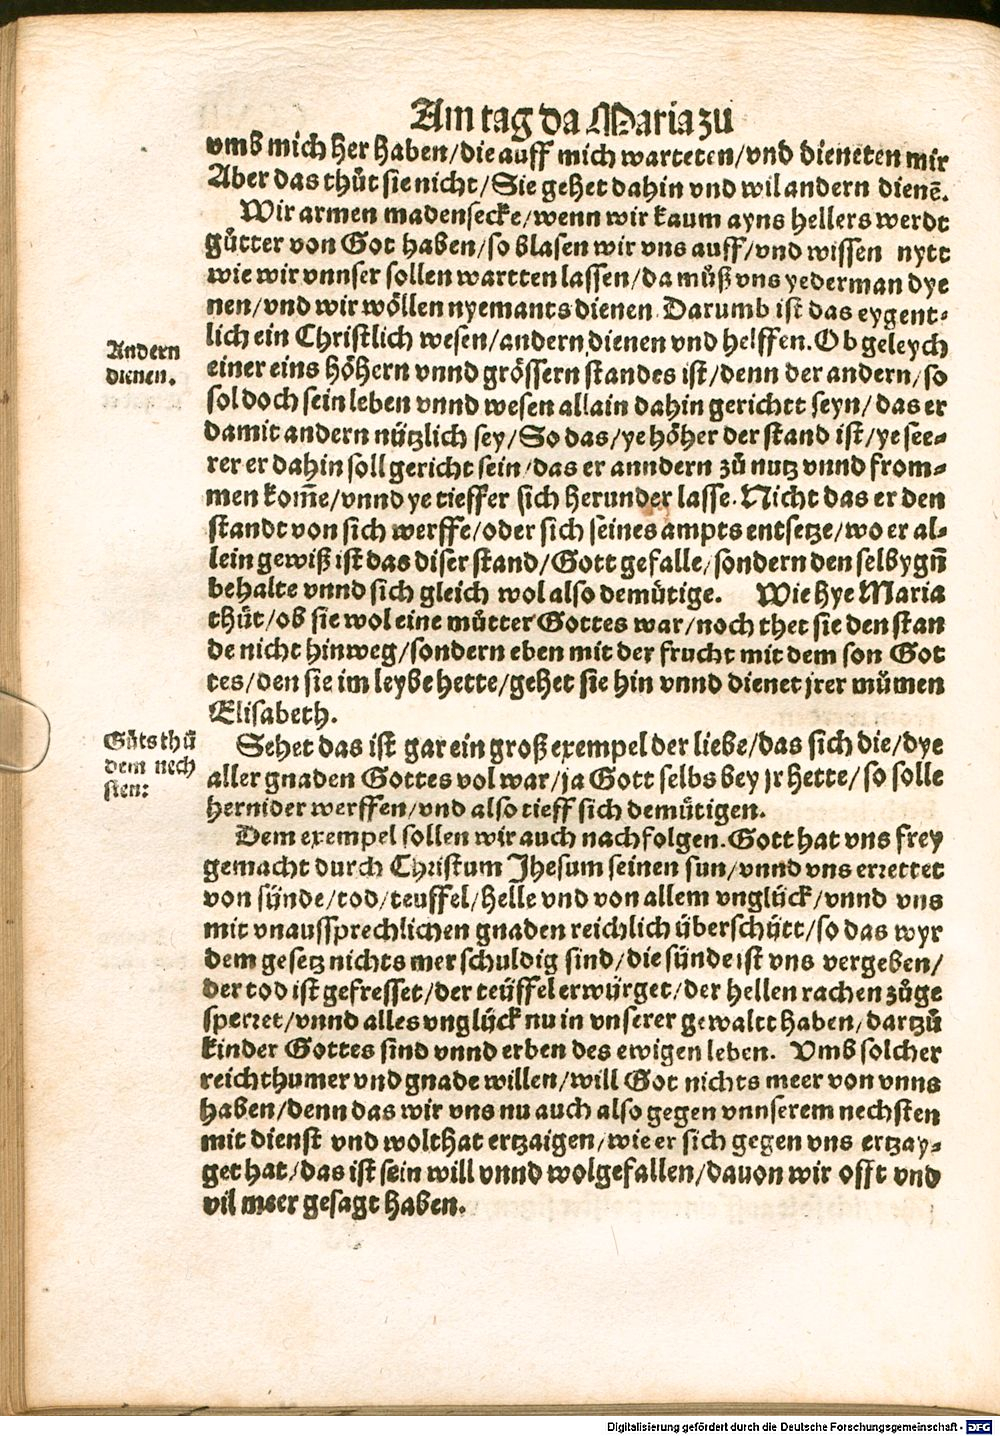 Am tag da Maria zu
vmb mich her haben/die auff mich warteten/vnd dieneten mir
Aber das thůt sie nicht/Sie gehet dahin vnd wil andern dienē.
Wir armen madensecke/wenn wir kaum ayns hellers werdt
gůtter von Got haben/so blasen wir vns auff/vnd wissen nytt
wie wir vnnser sollen wartten lassen/da můß vns yederman dye
nen/vnd wir wöllen nyemants dienen. Darumb ist das eygent⸗
lich ein Christlich wesen/andern dienen vnd helffen. Ob geleych
Andern
dienen.
einer eins höhern vnnd grössern standes ist/denn der andern/so
sol doch sein leben vnnd wesen allain dahin gerichtt seyn/das er
damit andern nützlich sey/So das/ye höher der stand ist/ye see⸗
rer er dahin soll gericht sein/das er anndern zů nutz vnnd from⸗
men kom̄e/vnnd ye tieffer sich herunder lasse. Nicht das er den
standt von sich werffe/oder sich seines ampts entsetze/wo er al⸗
lein gewiß ist das diser stand/Gott gefalle/sondern den selbygn̄
behalte vnnd sich gleich wol also demütige. Wie hye Maria
thůt/ob sie wol eine můtter Gottes war/noch thet sie den stan
de nicht hinweg/sondern eben mit der frucht mit dem son Got
tes/den sie im leybe hette/gehet sie hin vnnd dienet jrer můmen
Elisabeth.
Gůts thů
dem nech
sten:
Sehet das ist gar ein groß exempel der liebe/das sich die/dye
aller gnaden Gottes vol war/ja Gott selbs bey jr hette/so solle
hernider werffen/vnd also tieff sich demütigen.
Dem exempel sollen wir auch nachfolgen. Gott hat vns frey
gemacht durch Christum Jhesum seinen sun/vnnd vns errettet
von sünde/tod/teuffel/helle vnd von allem vnglück/vnnd vns
mit vnaussprechlichen gnaden reichlich überschütt/so das wyr
dem gesetz nichts mer schuldig sind/die sünde ist vns vergeben/
der tod ist gefresset/der teüffel erwürget/der hellen rachen zůge
sperret/vnnd alles vnglück nu in vnserer gewaltt haben/dartzů
kinder Gottes sind vnnd erben des ewigen leben. Vmb solcher
reichthumer vnd gnade willen/will Got nichts meer von vnns
haben/denn das wir vns nu auch also gegen vnnserem nechsten
mit dienst vnd wolthat ertzaigen/wie er sich gegen vns ertzay⸗
get hat/das ist sein will vnnd wolgefallen/dauon wir offt vnd
vil meer gesagt haben.
Digitalisierung gefördert durch die Deutsche Forschungsgemeinschaft - DFG